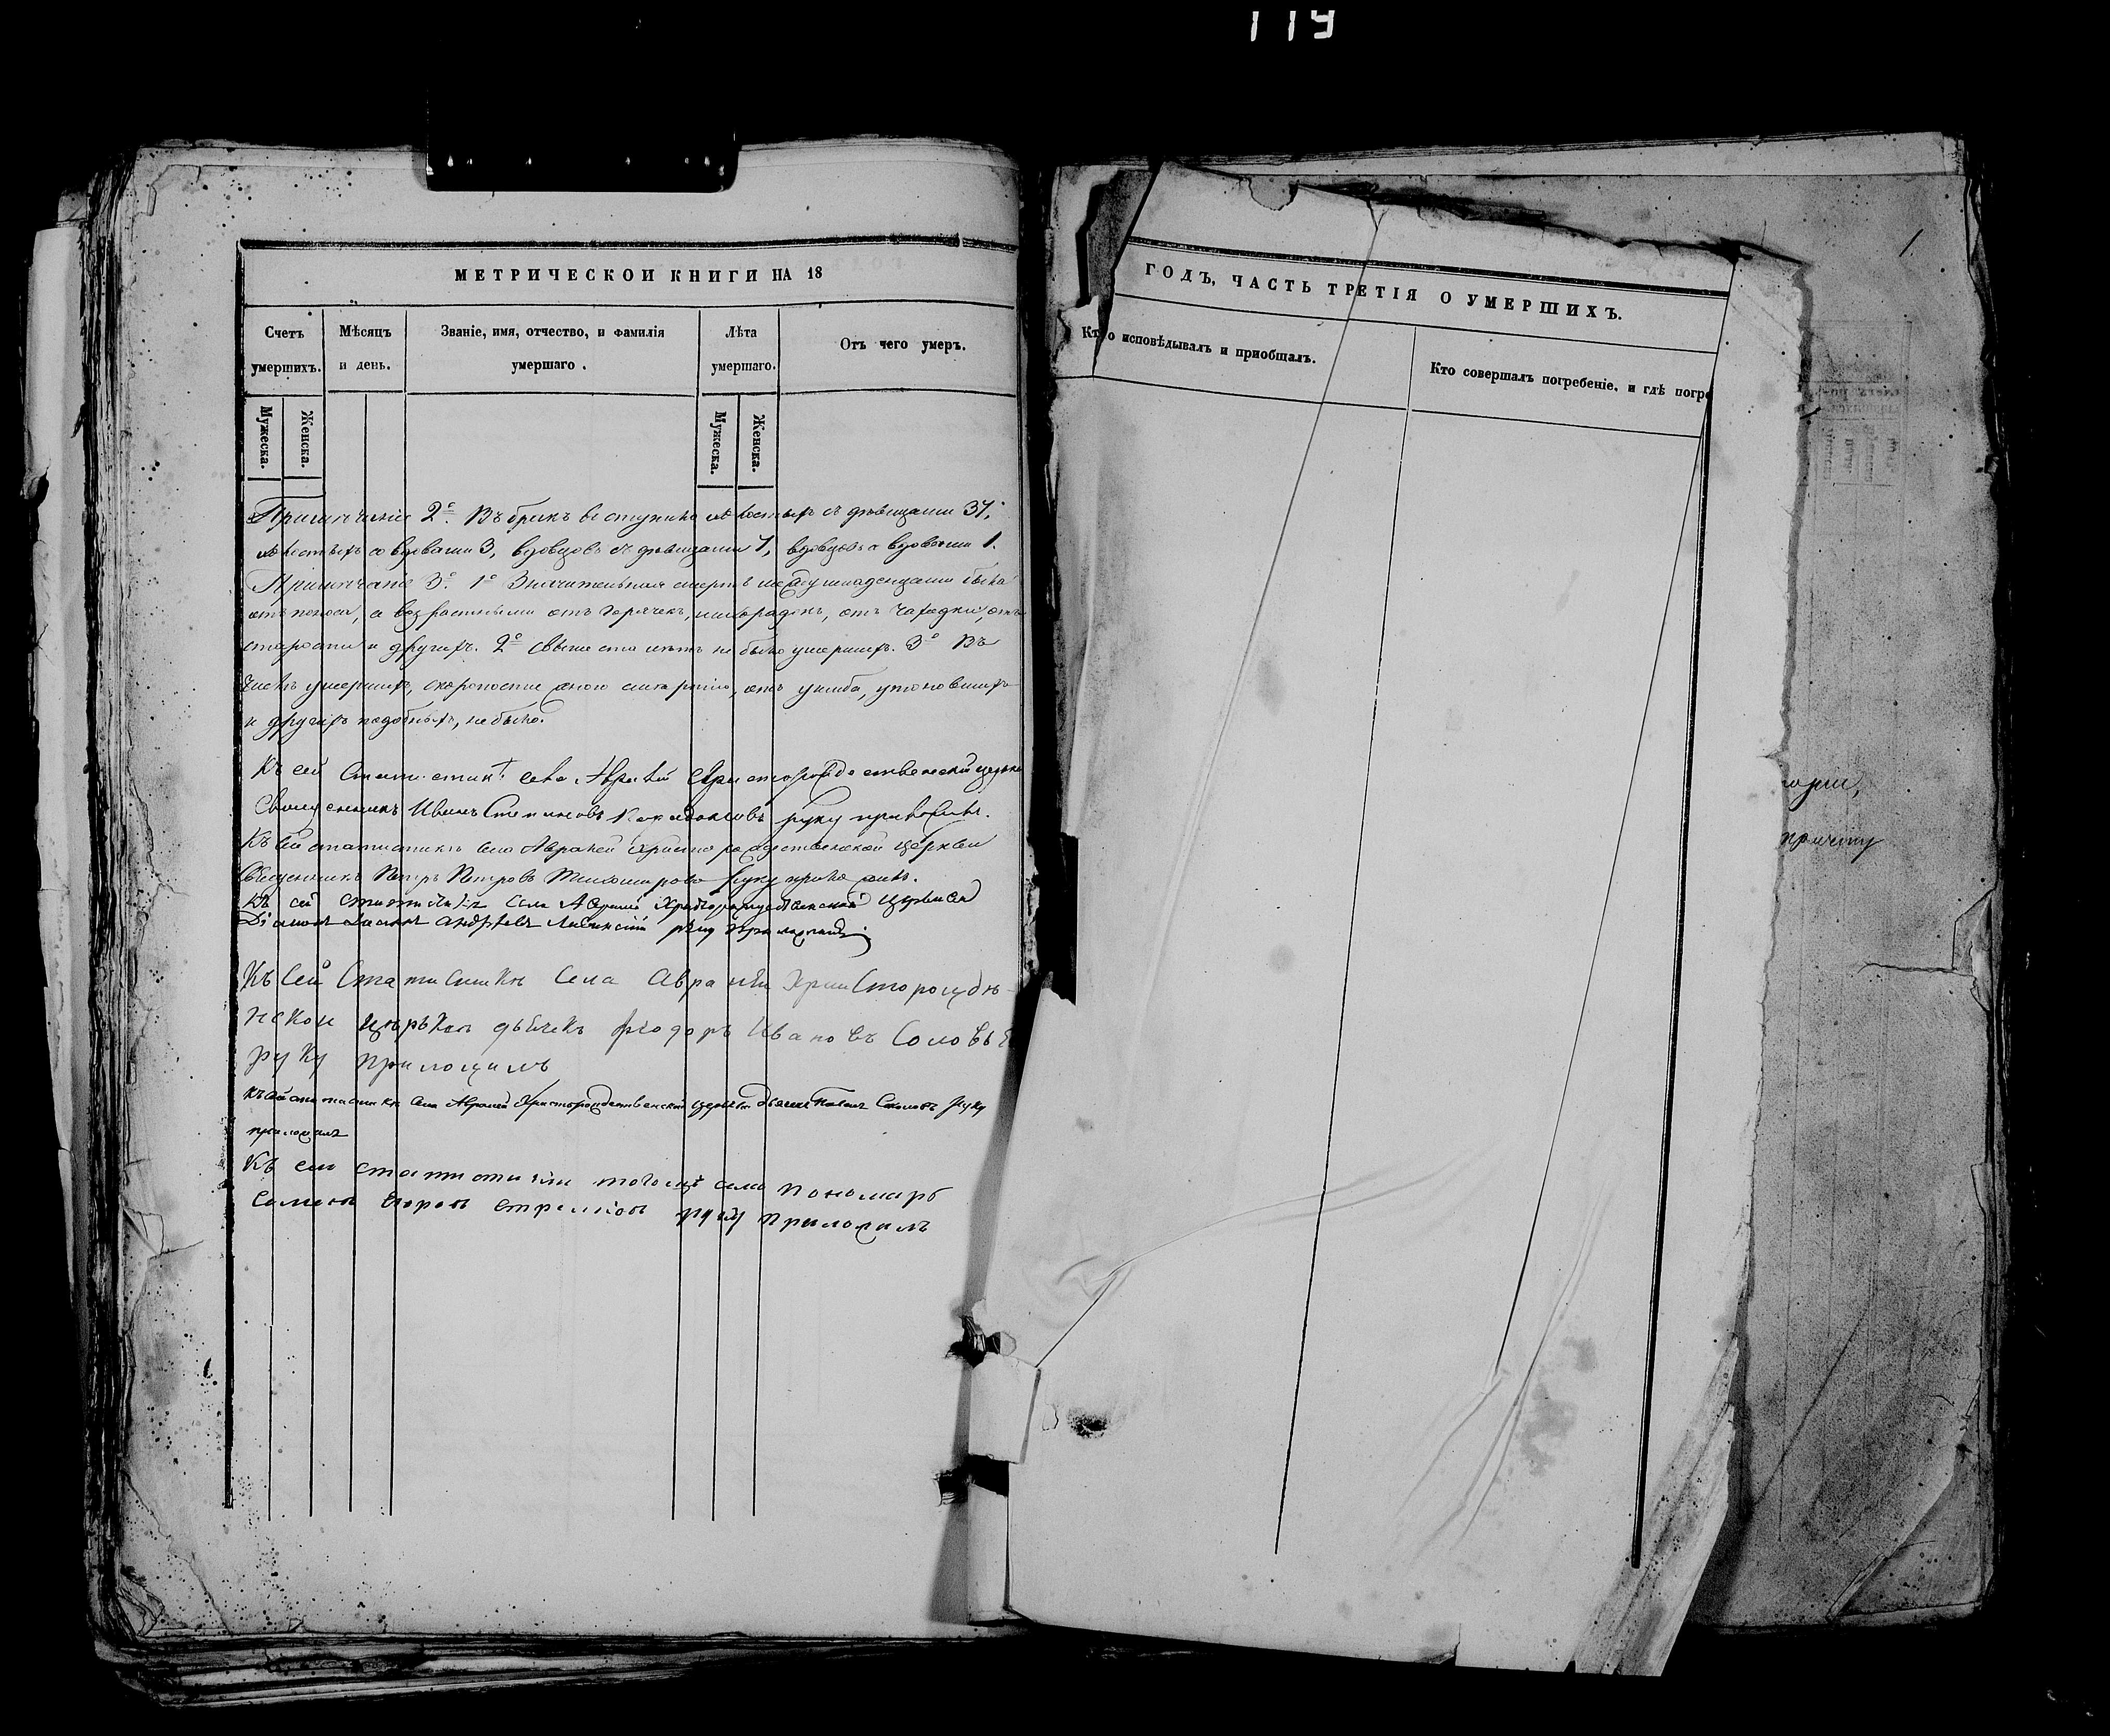 119
МЕТРИЧЕСКОЙ КНИГИ НА 18
Счетъ умершихъ.
Мѣсяцъ и день.
Званіе, имя, отчество, и фамилія умершаго.
Лѣта умершаго.
Отъ чего умеръ.
Мужеска.
Женска.
Мужеска.
Женска.
Примѣчаніе 2е. Въ бракъ вступило холостыхъ съ дѣвицами 37,
холостыхъ со вдовами 3, вдовцовъ съ дѣвицами 7, вдовцовъ съ вдовами 1.
Примѣчаніе 3е. 1е Значительная смерть между младенцами была
отъ поноса, а возрастными отъ горячекъ, лихорадокъ, отъ чахотки, отъ
старости и другихъ. 2е Свыше ста лѣтъ не было умершихъ. 3е Въ
числѣ умершихъ, скоропостижною смертію, отъ ушиба, утоновшихъ
и другихъ подобныхъ, не было.
Къ сей Статистикѣ села Авралей Христорождественской церкви
Священникъ Иванъ Степановъ руку приложилъ.
Къ сей статистикѣ села Авралей Христорождественской церкви
Священникъ Петръ Петровъ Тихомировъ руку приложилъ.
Къ сей статистикѣ села Авралей Христорождественской церкви
Діаконъ Андреевъ руку приложилъ
Къ сей Статистикѣ села Авралей Христорожде-
нской церкви дьячекъ Фіодоръ Ивановъ Соловье
руку приложилъ
Къ сей статистикѣ села Авралей Христорождественской церкви дьячекъ Павелъ руку
приложилъ
Къ сей статистики тогожъ села пономарь
Семенъ Егоровъ руку приложилъ
ГОДЪ, ЧАСТЬ ТРЕТІЯ О УМЕРШИХЪ.
Кто исповѣдывалъ и пріобщалъ.
Кто совершалъ погребеніе, и гдѣ погре
1.
причту